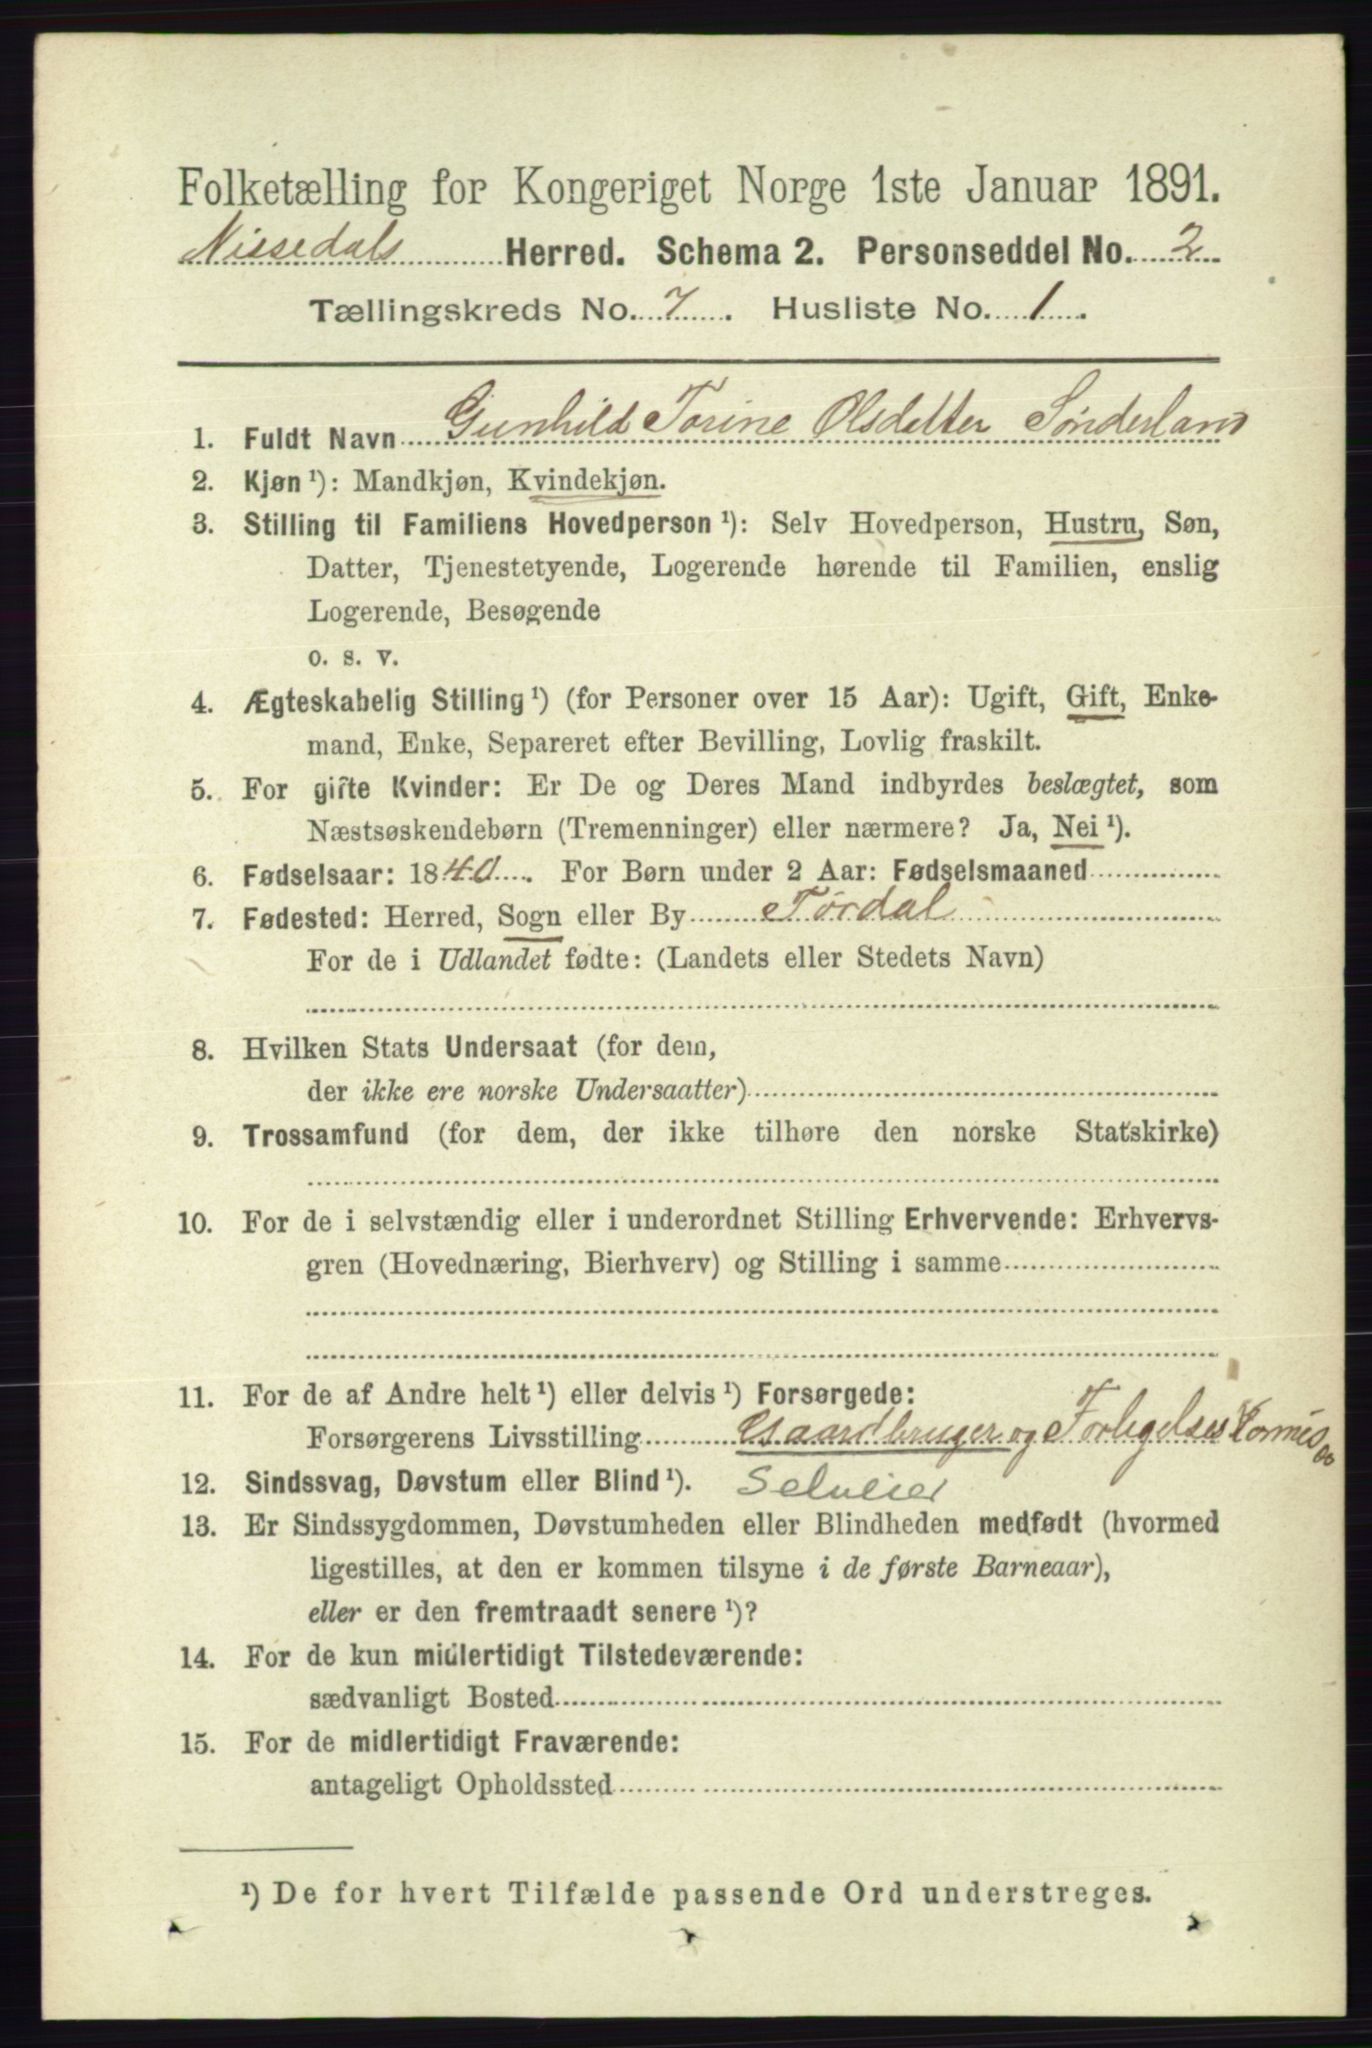 Folketælling for Kongeriget Norge 1ste Januar 1891.
Nissedals Herred. Schema 2. Personseddel No. 2
Tællingskreds No. 7. Husliste No. 1.
1. Fuldt Navn Gunhild Torine Olsdatter Sønderland
2. Kjøn ¹): Mandkjøn, Kvindekjøn.
3. Stilling til Familiens Hovedperson ¹): Selv Hovedperson, Hustru, Søn,
Datter, Tjenestetyende, Logerende hørende til Familien, enslig
Logerende, Besøgende
o. s. v.
4. Ægteskabelig Stilling ¹) (for Personer over 15 Aar): Ugift, Gift, Enke-
mand, Enke, Separeret efter Bevilling, Lovlig fraskilt.
5. For gifte Kvinder: Er De og Deres Mand indbyrdes beslægtet, som
Næstsøskendebørn (Tremenninger) eller nærmere? Ja, Nei ¹).
6. Fødselsaar: 1840. For Børn under 2 Aar: Fødselsmaaned
7. Fødested: Herred, Sogn eller By Tørdal
For de i Udlandet fødte: (Landets eller Stedets Navn)
8. Hvilken Stats Undersaat (for dem,
der ikke ere norske Undersaatter)
9. Trossamfund (for dem, der ikke tilhøre den norske Statskirke)
10. For de i selvstændig eller i underordnet Stilling Erhvervende: Erhvervs-
gren (Hovednæring, Bierhverv) og Stilling i samme
11. For de af Andre helt ¹) eller delvis ¹) Forsørgede:
Forsørgerens Livsstilling Gaardbruger og Forligelses
12. Sindssvag, Døvstum eller Blind ¹). Selveier
13. Er Sindssygdommen, Døvstumheden eller Blindheden medfødt (hvormed
ligestilles, at den er kommen tilsyne i de første Barneaar),
eller er den fremtraadt senere ¹)?
14. For de kun midlertidigt Tilstedeværende:
sædvanligt Bosted
15. For de midlertidigt Fraværende:
antageligt Opholdssted
¹) De for hvert Tilfælde passende Ord understreges.